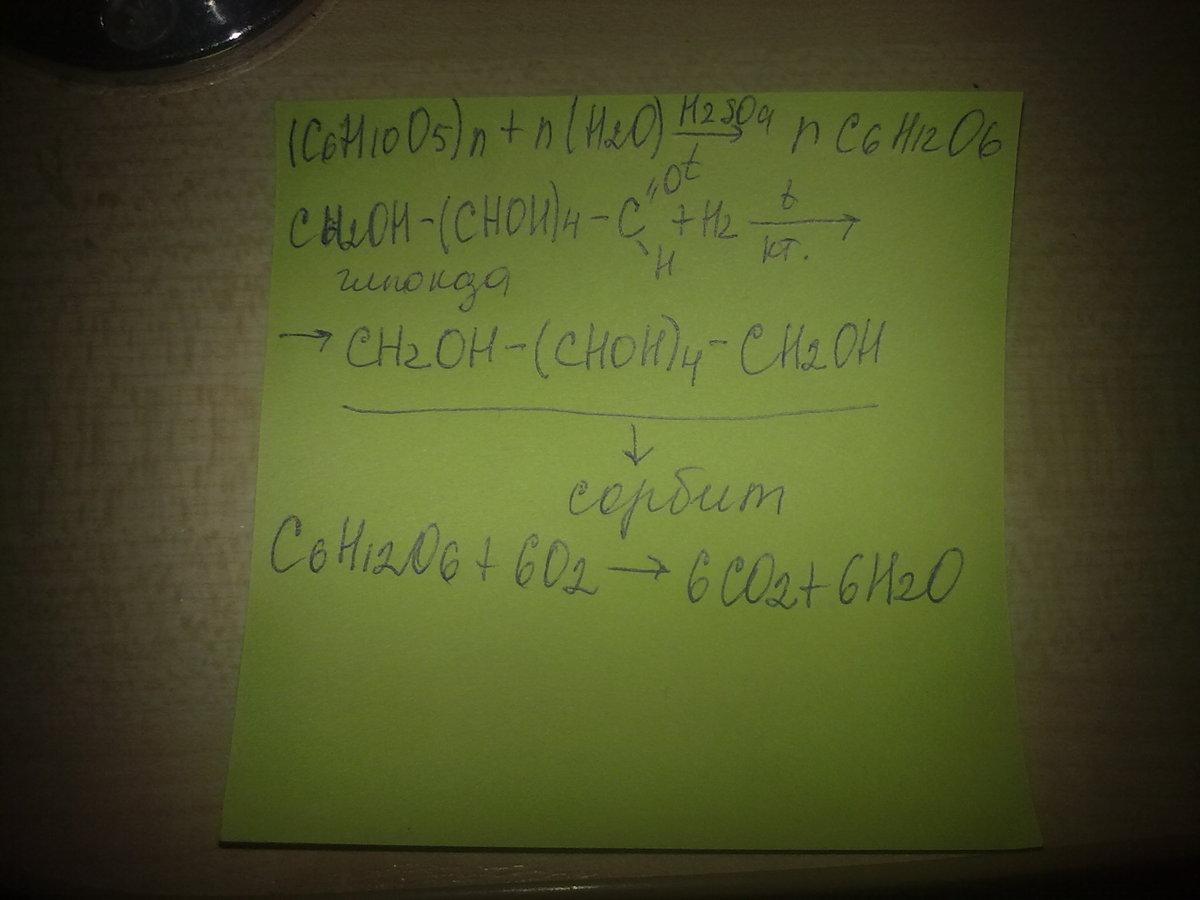 (C6H10O5)n + n(H2O) H2SO4 t → n C6H12O6
CH2OH-(CHOH)4-C "O \ H + H2 t кт. →
глюкоза
→ CH2OH-(CHOH)4-CH2OH
↓
сорбит
C6H12O6 + 6O2 → 6CO2 + 6H2O